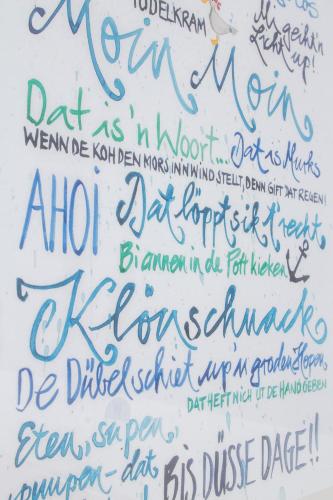 TÜDELKRAM
Mi geiht'n
Licht up!
Moin Moin
Dat is 'n Woort... Dat is Murks
WENN DE KOH DEN MORS INN WIND STELLT, DENN GIFT DAT REGEN!
AHOI Dat löppt sik t'recht
Bi annen in de Pött kieken
Klönschnack
De Dübel schiet up'n groden Hopen
DAT HEFT NICH UT DE HAND GEBEN
Eten, supen,
pumpen - dat
BIS DÜSSE DAGE!!